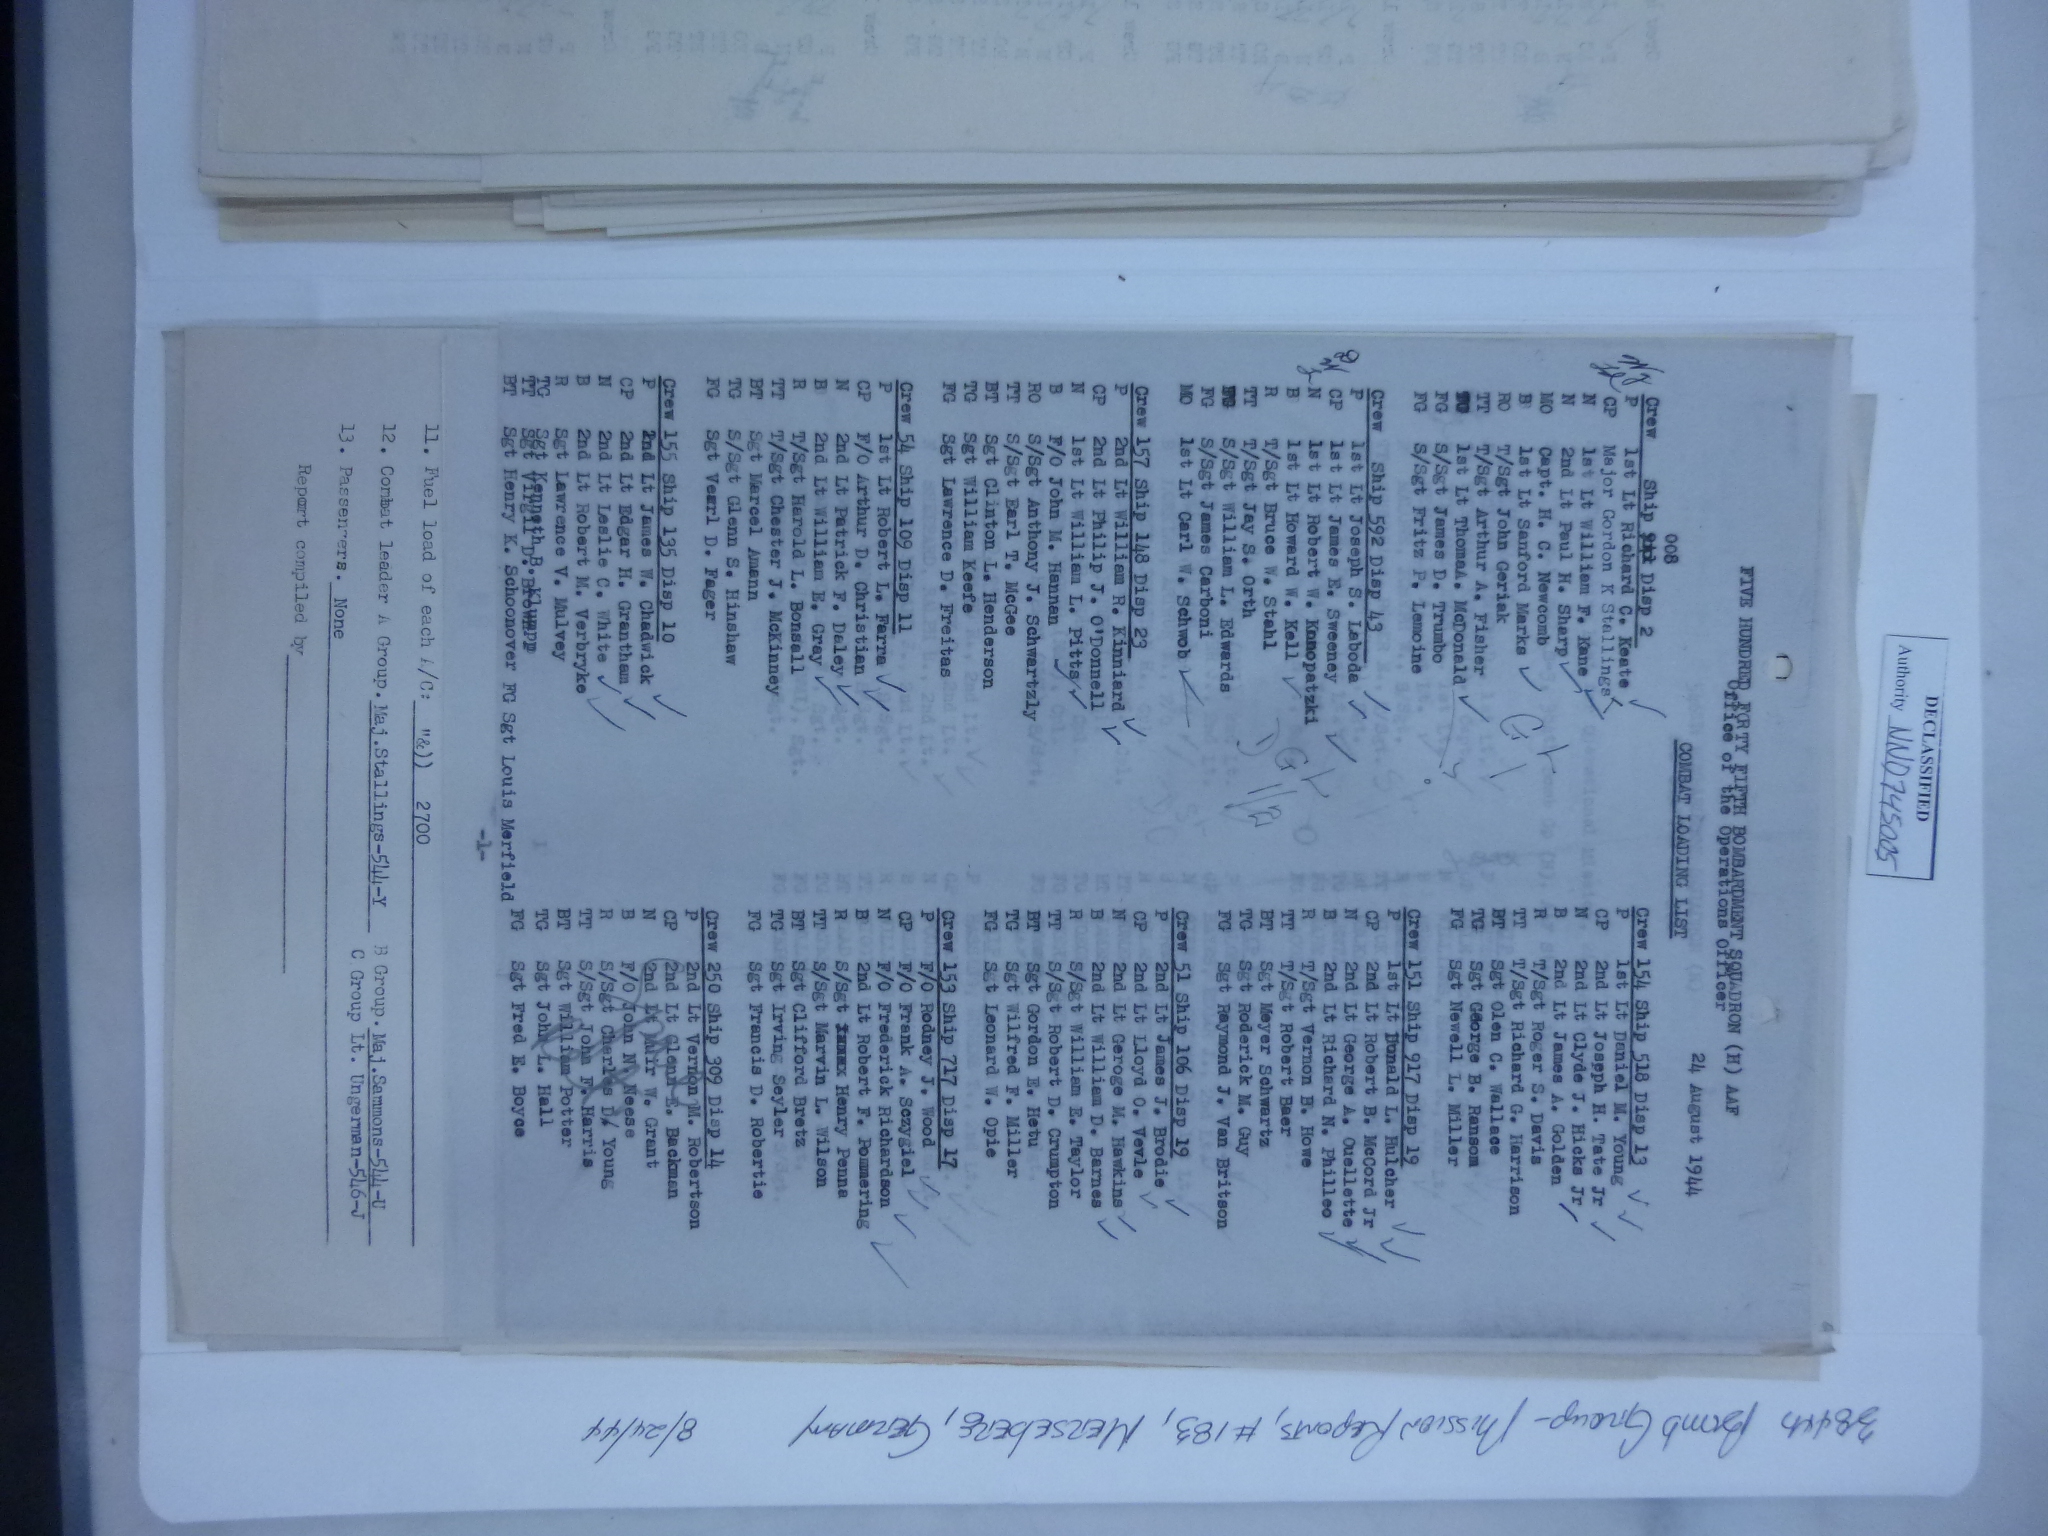 DECLASSIFIED
Authority NND745005
FIVE HUNDRED FORTY FIFTH BOMBARDMENT SQUADRON (H) AAF
Office of the Operations Officer
24 August 1944
COMBAT LOADING LIST
008
Crew Ship Disp 2
P 1st Lt Richard C. Keate
CP Major Gordon K Stallings
N 1st Lt William F. Kane
N 2nd Lt Paul H. Sharp
MO Capt. H. C. Newcomb
B 1st Lt Sanford Marks
RO T/Sgt John Geriak
TT T/Sgt Arthur A. Fisher
1st Lt ThomasA. McDonald
FG S/Sgt James D. Trumbo
FG S/Sgt Fritz P. Lemoine
Crew Ship 592 Disp 43
P 1st Lt Joseph S. Laboda
CP 1st Lt James E. Sweeney
N 1st Lt Robert W. Konopatzki
B 1st Lt Howard W. Kell
R T/Sgt Bruce W. Stahl
TT T/Sgt Jay S. Orth
S/Sgt William L. Edwards
FG S/Sgt James Carboni
MO 1st Lt Carl W. Schwob
Crew 157 Ship 148 Disp 23
P 2nd Lt William R. Kinniard
CP 2nd Lt Philip J. O'Donnell
N 1st Lt William L. Pitts
B F/O John M. Hannan
RO S/Sgt Anthony J. Schwartzly
TT S/Sgt Earl T. McGee
BT Sgt Clinton L. Henderson
TG Sgt William Keefe
FG Sgt Lawrence D. Freitas
Crew 54 Ship 109 Disp 11
P 1st Lt Robert L. Farra
CP F/O Arthur D. Christian
N 2nd Lt Patrick F. Daley
B 2nd Lt William E. Gray
R T/Sgt Harold L. Bonsall
TT T/Sgt Chester J. McKinney
BT Sgt Marcel Amann
TG S/Sgt Glenn S. Hinshaw
FG Sgt Vearl D. Fager
Crew 155 Ship 135 Disp 10
P 2nd Lt James W. Chadwick
CP 2nd Lt Edgar H. Grantham
N 2nd Lt Leslie C. White
B 2nd Lt Robert M. Verbryke
R Sgt Lawrence V. Mulvey
TG Sgt Kenneth B. Klumpp
TT Sgt Virgil D. Brown
BT Sgt Henry K. Schoonover FG Sgt Louis Merfield
Crew 154 Ship 518 Disp 13
P 1st Lt Daniel M. Young
CP 2nd Lt Joseph H. Tate Jr
N 2nd Lt Clyde J. Hicks Jr
B 2nd Lt James A. Golden
R T/Sgt Roger S. Davis
TT T/Sgt Richard G. Harrison
BT Sgt Olen C. Wallace
TG Sgt George B. Ransom
FG Sgt Newell L. Miller
Crew 151 Ship 917 Disp 19
P 1st Lt Donald L. Hulcher
CP 2nd Lt Robert B. McCord Jr
N 2nd Lt George A. Ouellette
B 2nd Lt Richard N. Philleo
R T/Sgt Vernon B. Howe
TT T/Sgt Robert Baer
BT Sgt Meyer Schwartz
TG Sgt Roderick M. Guy
FG Sgt Raymond J. Van Britson
Crew 51 Ship 106 Disp 19
P 2nd Lt James J. Brodie
CP 2nd Lt Lloyd O. Vevle
N 2nd Lt Geroge M. Hawkins
B 2nd Lt William D. Barnes
R S/Sgt William E. Taylor
TT S/Sgt Robert D. Crumpton
BT Sgt Gordon E. Hetu
TG Sgt Wilfred F. Miller
FG Sgt Leonard W. Opie
Crew 153 Ship 717 Disp 17
P F/O Rodney J. Wood
CP F/O Frank A. Sczygiel
N F/O Frederick Richardson
B 2nd Lt Robert F. Pommering
R S/Sgt Henry Penna
TT S/Sgt Marvin L. Wilson
BT Sgt Clifford Bretz
TG Sgt Irving Seyler
FG Sgt Francis D. Robertie
Crew 250 Ship 909 Disp 14
P 2nd Lt Vernon M. Robertson
CP 2nd Lt Glenn E. Backman
N 2nd Lt Muir W. Grant
B F/O John N. Neese
R S/Sgt Charles D. Young
TT S/Sgt John F. Harris
BT Sgt William Potter
TG Sgt John L. Hall
FG Sgt Fred E. Boyce
-1-
11. Fuel load of each A/C: "&)) 2700
12. Combat leader A Group. Maj.Stallings-544-Y B Group. Maj.Sammons-544-U
C Group Lt. Ungerman-546-J
13. Passengers. None
Report compiled by
384th Bomb Group - Mission Reports, #183, Merseberg, Germany 8/24/44